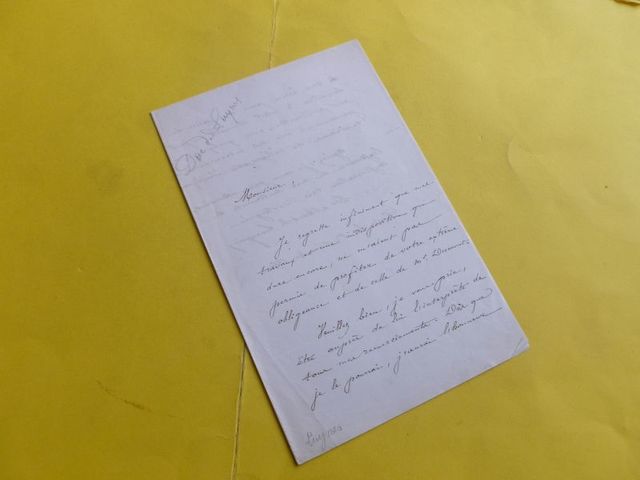 Duc de Luynes
Monsieur,
Je regrette infiniment que mes
travaux et une indisposition qui
dure encore, ne m'aient pas
permis de profiter de votre extrême
obligeance et de celle de Mr. Dumont.
Veuillez bien, je vous prie,
être auprès de lui l'interprète de
tous mes remerciements. Dès que
je le pourrai, j'aurai l'honneur
Luynes